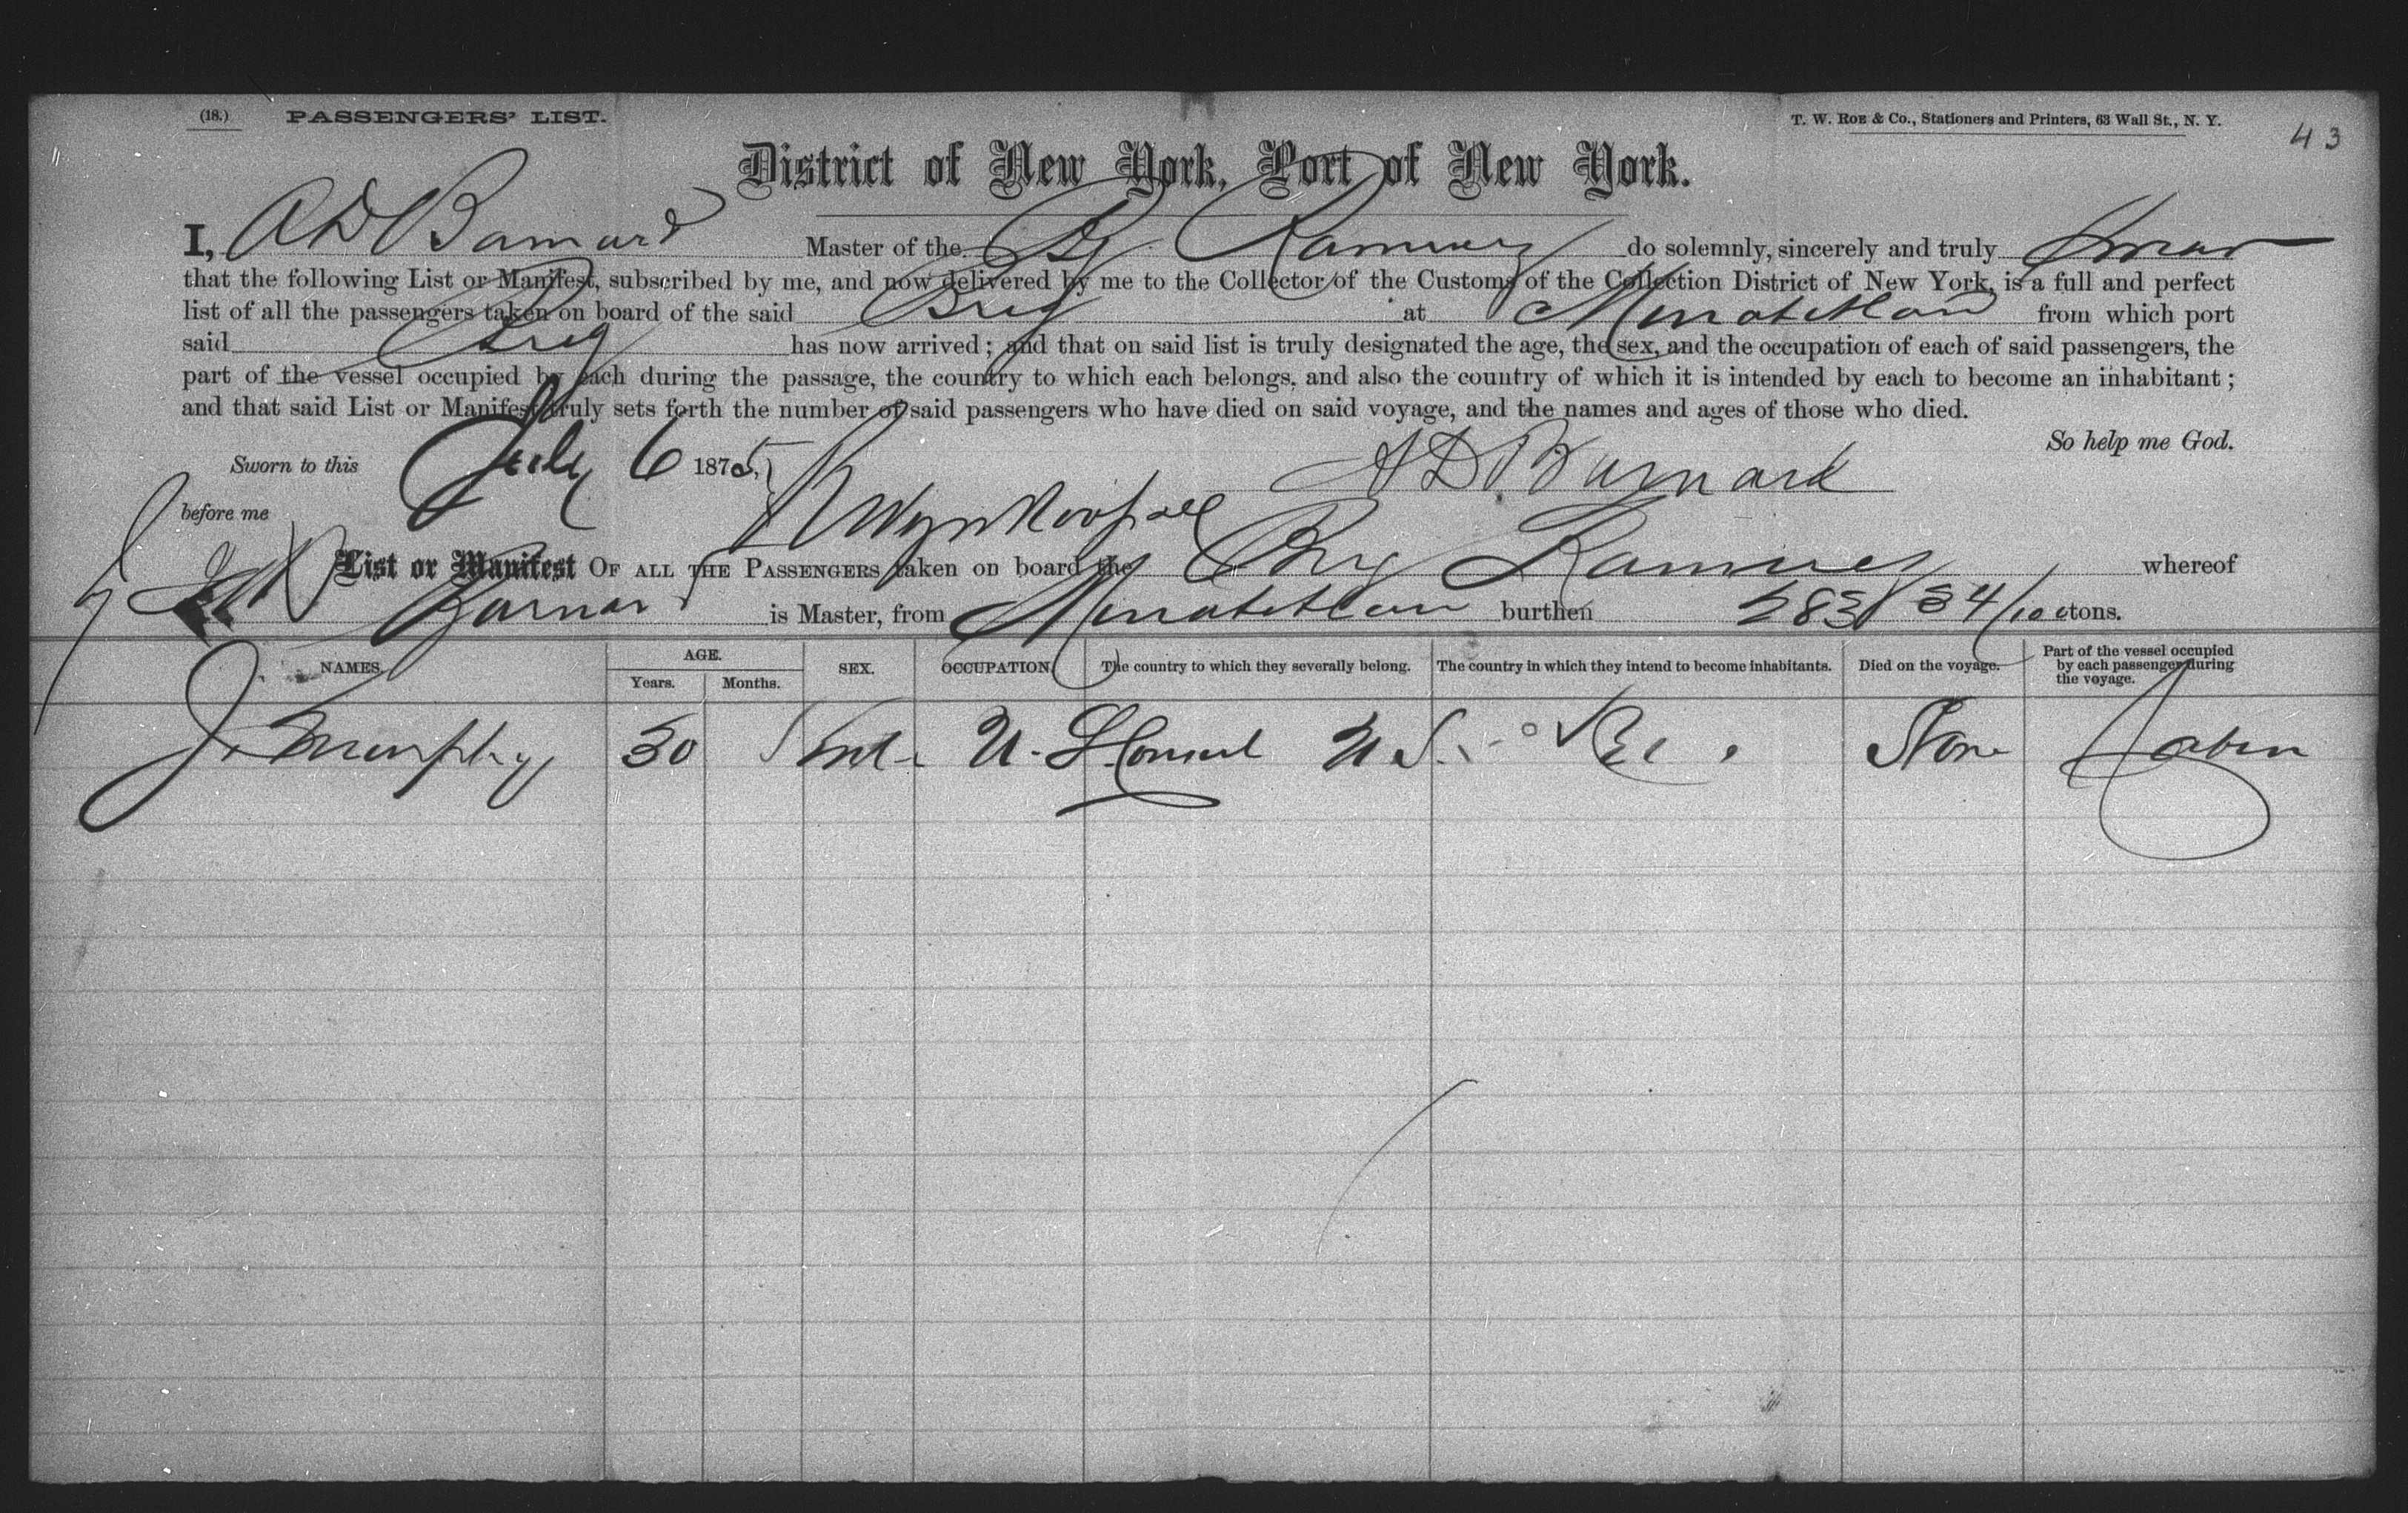 (18.) PASSENGERS' LIST. T. W. ROE & Co., Stationers and Printers, 63 Wall St., N. Y. 43
District of New York, Port of New York.
I, A D Barnard Master of the Brig do solemnly, sincerely and truly swear
that the following List or Manifest, subscribed by me, and now delivered by me to the Collector of the Customs of the Collection District of New York, is a full and perfect
list of all the passengers taken on board of the said Brig at Minatitlan from which port
said Brig has now arrived; and that on said list is truly designated the age, the sex, and the occupation of each of said passengers, the
part of the vessel occupied by each during the passage, the country to which each belongs, and also the country of which it is intended by each to become an inhabitant;
and that said List or Manifest truly sets forth the number of said passengers who have died on said voyage, and the names and ages of those who died.
So help me God.
Sworn to this July 6 1875, A D Barnard
before me
List or Manifest OF ALL THE PASSENGERS taken on board the Brig whereof
Barnard is Master, from Minatitlan burthen 283 34/100 tons.
NAMES. AGE. Years. Months. SEX. OCCUPATION. The country to which they severally belong. The country in which they intend to become inhabitants. Died on the voyage. Part of the vessel occupied by each passenger during the voyage.
J. Murphy 30 U. S. Consul U S. None Cabin